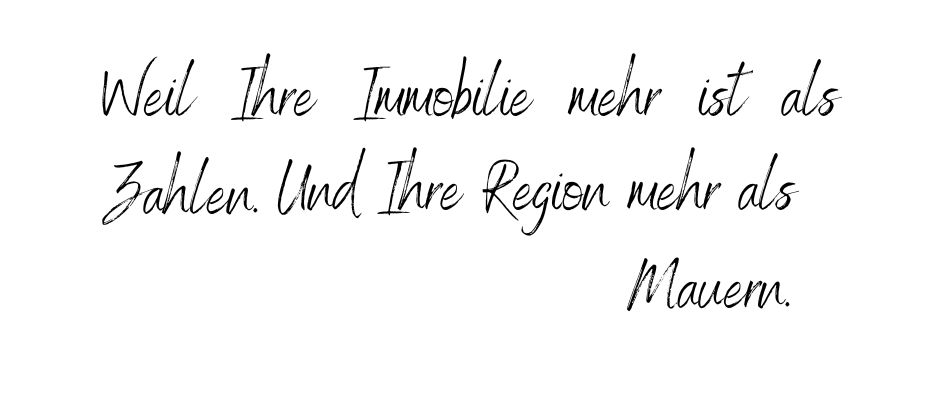 Weil Ihre Immobilie mehr ist als
Zahlen. Und Ihre Region mehr als
Mauern.